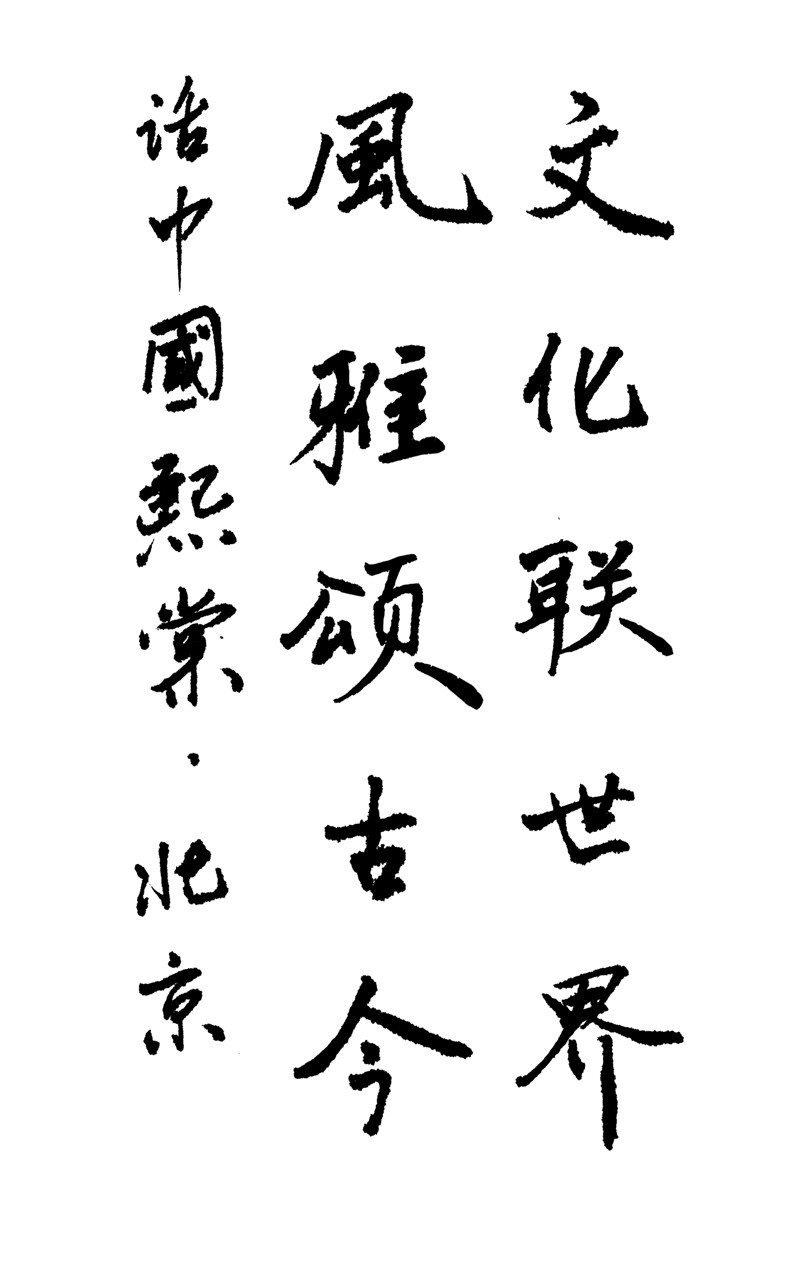 文化联世界
風雅颂古今
话中國熙棠·北京